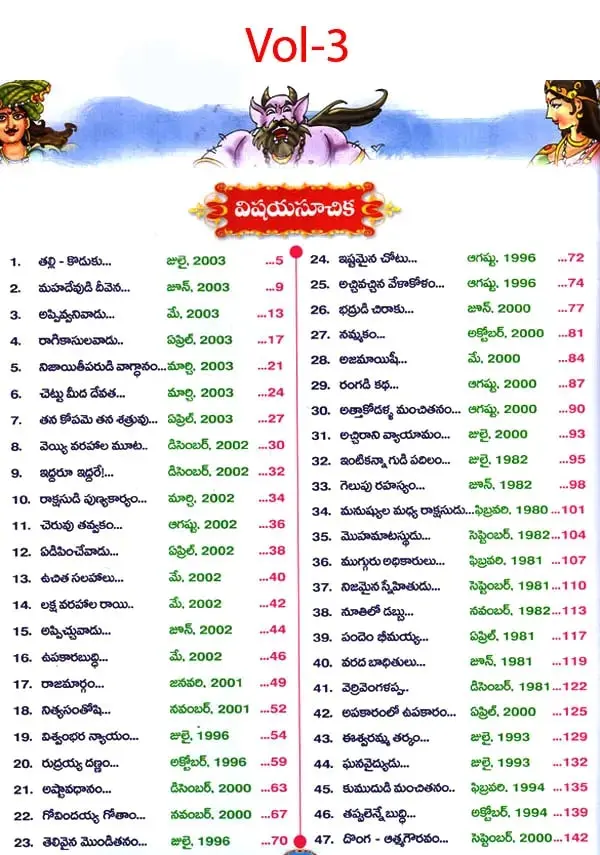 Vol-3
విషయసూచిక
1. తల్లి - కొడుకు... జులై, 2003 ...5
2. మహదేవుడి దీవెన... జూన్, 2003 ...9
3. అప్పివ్వనివాడు... మే, 2003 ...13
4. రాగికాసులవాడు.. ఏప్రిల్, 2003 ...17
5. నిజాయితీపరుడి వాగ్దానం... మార్చి, 2003 ...21
6. చెట్టు మీద దేవత... మార్చి, 2003 ...24
7. తన కోపమె తన శత్రువు... ఏప్రిల్, 2003 ...27
8. వెయ్యి వరహాల మూట.. డిసెంబర్, 2002 ...30
9. ఇద్దరూ ఇద్దరే!... డిసెంబర్, 2002 ...32
10. రాక్షసుడి పుణ్యకార్యం... మార్చి, 2002 ...34
11. చెరువు తవ్వకం... ఆగష్టు, 2002 ...36
12. ఏడిపించేవాడు... ఏప్రిల్, 2002 ...38
13. ఉచిత సలహాలు... మే, 2002 ...40
14. లక్ష వరహాల రాయి.. మే, 2002 ...42
15. అప్పిచ్చువాడు... జూన్, 2002 ...44
16. ఉపకారబుద్ధి... మే, 2002 ...46
17. రాజమార్గం... జనవరి, 2001 ...49
18. నిత్యసంతోషి... నవంబర్, 2001 ...52
19. విశ్వంభర న్యాయం... జులై, 1996 ...54
20. రుద్రయ్య దణ్ణం... అక్టోబర్, 1996 ...59
21. అష్టావధానం... డిసెంబర్, 2000 ...63
22. గోవిందయ్య గోతాం... నవంబర్, 2000 ...67
23. తెలివైన మొండితనం... జులై, 1996 ...70
24. ఇష్టమైన చోటు... ఆగష్టు, 1996 ...72
25. అచ్చివచ్చిన వేళాకోళం... ఆగష్టు, 1996 ...74
26. భద్రుడి చిరాకు... జూన్, 2000 ...77
27. నమ్మకం... అక్టోబర్, 2000 ...81
28. అజమాయిషీ... మే, 2000 ...84
29. రంగడి కథ... ఆగష్టు, 2000 ...87
30. అత్తాకోడళ్ళ మంచితనం... ఆగష్టు, 2000 ...90
31. అచ్చిరాని వ్యాయామం... జులై, 2000 ...93
32. ఇంటికన్నా గుడి పదిలం... జులై, 1982 ...95
33. గెలుపు రహస్యం... జూన్, 1982 ...98
34. మనుష్యుల మధ్య రాక్షసుడు... ఫిబ్రవరి, 1980 ...101
35. మొహమాటస్థుడు... సెప్టెంబర్, 1982 ...104
36. ముగ్గురు అధికారులు... ఫిబ్రవరి, 1981 ...107
37. నిజమైన స్నేహితుడు... సెప్టెంబర్, 1981 ...110
38. నూతిలో డబ్బు... నవంబర్, 1982 ...113
39. పందెం భీమయ్య... ఏప్రిల్, 1981 ...117
40. వరద బాధితులు... జూన్, 1981 ...119
41. వెర్రివెంగళప్ప.. డిసెంబర్, 1981 ...122
42. అపకారంలో ఉపకారం... ఏప్రిల్, 2000 ...125
43. ఈశ్వరమ్మ తర్కం... జులై, 1993 ...129
44. ఘనవైద్యుడు... జులై, 1993 ...132
45. కుముదుడి మంచితనం.. ఫిబ్రవరి, 1994 ...135
46. తప్పలెన్నే బుద్ధి... అక్టోబర్, 1994 ...139
47. దొంగ - ఆత్మగౌరవం... సెప్టెంబర్, 2000 ...142